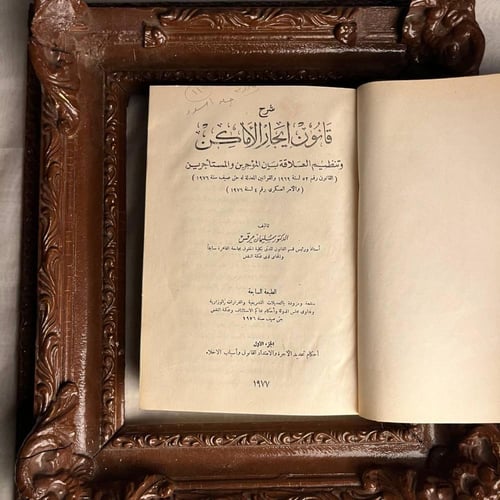 شرح
قانون إيجار الأماكن
وتنظيم العلاقة بين المؤجرين والمستأجرين
( القانون رقم ٥٢ لسنة ١٩٦٩ والقوانين المعدلة له حتى صيف سنة ١٩٧٦ )
( والأمر العسكرى رقم ٤ لسنة ١٩٧٦ )
تأليف
الدكتور سليمان مرقس
أستاذ ورئيس قسم القانون المدنى بكلية الحقوق بجامعة القاهرة سابقا
والمحامى لدى محكمة النقض
الطبعة السابعة
منقحة ومزودة بالتعديلات التشريعية والقرارات الوزارية
وفتاوى مجلس الدولة وأحكام محاكم الاستئناف ومحكمة النقض
حتى صيف سنة ١٩٧٦
الجزء الأول
أحكام تحديد الأجرة والامتداد القانونى وأسباب الاخلاء
١٩٧٧